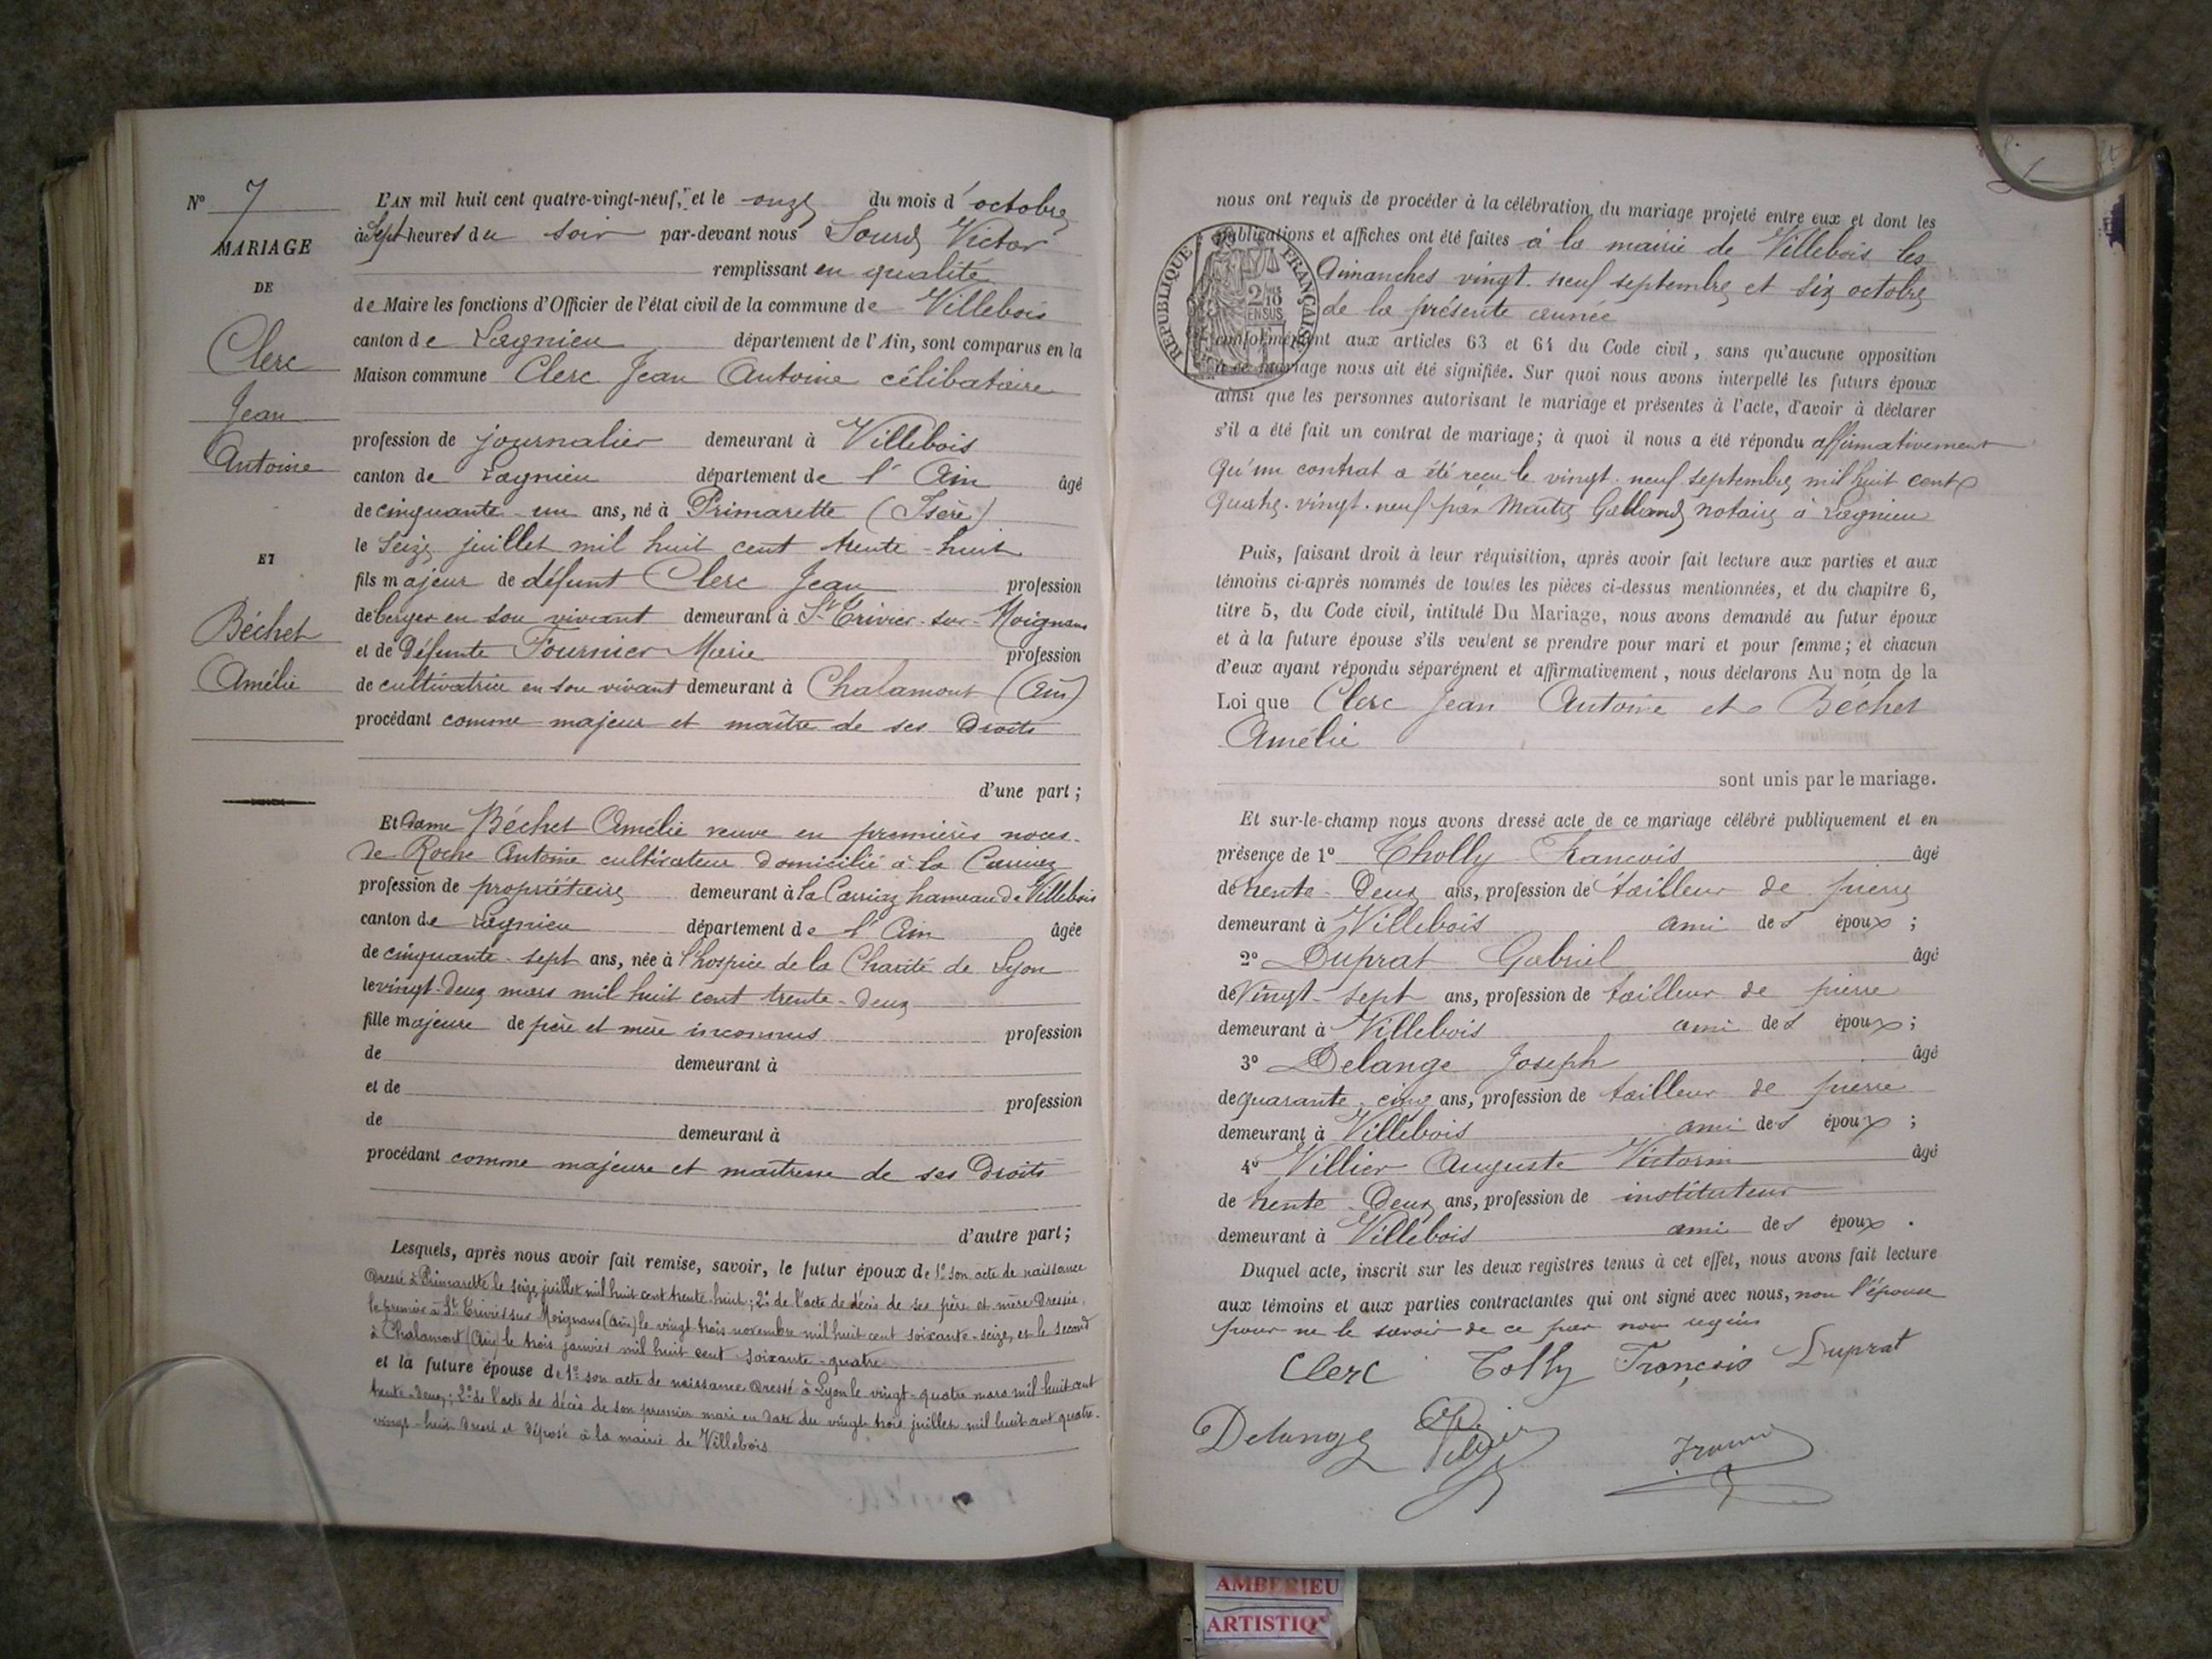 N° 7
MARIAGE
DE
Clerc
Jean
Antoine
ET
Béchet
Amélie
L'AN mil huit cent quatre-vingt-neuf, et le onze du mois d'octobre
à Sept heures du soir par-devant nous Sourd Victor
remplissant en qualité
de Maire les fonctions d'Officier de l'état civil de la commune de Villebois
canton de Lagnieu département de l'Ain, sont comparus en la
Maison commune Clerc Jean Antoine célibataire
profession de journalier demeurant à Villebois
canton de Lagnieu département de l'Ain âgé
de cinquante-un ans, né à Primarette (Isère)
le Seize juillet mil huit cent trente-huit
fils majeur de défunt Clerc Jean profession
de berger en son vivant demeurant à St Trivier-sur-Moignans
et de défunte Fournier Marie profession
de cultivatrice en son vivant demeurant à Chalamont (Ain)
procédant comme majeur et maître de ses Droits
d'une part;
Et Dame Béchet Amélie veuve en premières noces
de Roche Antoine cultivateur domicilié à la Carriaz
profession de propriétaire demeurant à la Carriaz hameau de Villebois
canton de Lagnieu département de l'Ain âgée
de cinquante-sept ans, née à l'hospice de la Charité de Lyon
le vingt-deux mars mil huit cent trente-deux
fille majeure de père et mère inconnus profession
de demeurant à
et de profession
de demeurant à
procédant comme majeure et maîtresse de ses Droits
d'autre part;
Lesquels, après nous avoir fait remise, savoir, le futur époux de 1° son acte de naissance
Dressé à Primarette le seize juillet mil huit cent trente-huit; 2° de l'acte de décès de ses père et mère Dressés,
le premier à St Trivier sur Moignans (Ain) le vingt-trois novembre mil huit cent soixante-seize, et le second
à Chalamont (Ain) le trois janvier mil huit cent soixante-quatre
et la future épouse de 1° son acte de naissance Dressé à Lyon le vingt-quatre mars mil huit cent
trente-deux; 2° de l'acte de décès de son premier mari en date du vingt-trois juillet mil huit cent quatre-
vingt-huit Dressé et déposé à la mairie de Villebois
nous ont requis de procéder à la célébration du mariage projeté entre eux et dont les
publications et affiches ont été faites à la mairie de Villebois les
dimanches vingt-neuf septembre et six octobre
de la présente année
conformément aux articles 63 et 64 du Code civil, sans qu'aucune opposition
à ce mariage nous ait été signifiée. Sur quoi nous avons interpellé les futurs époux
ainsi que les personnes autorisant le mariage et présentes à l'acte, d'avoir à déclarer
s'il a été fait un contrat de mariage; à quoi il nous a été répondu affirmativement
Qu'un contrat a été reçu le vingt-neuf septembre mil huit cent
quatre-vingt-neuf par Maître Galland notaire à Lagnieu
Puis, faisant droit à leur réquisition, après avoir fait lecture aux parties et aux
témoins ci-après nommés de toutes les pièces ci-dessus mentionnées, et du chapitre 6,
titre 5, du Code civil, intitulé Du Mariage, nous avons demandé au futur époux
et à la future épouse s'ils veulent se prendre pour mari et pour femme; et chacun
d'eux ayant répondu séparément et affirmativement, nous déclarons Au nom de la
Loi que Clerc Jean Antoine et Béchet
Amélie
sont unis par le mariage.
Et sur-le-champ nous avons dressé acte de ce mariage célébré publiquement et en
présence de 1° Tholly Francois âgé
de trente-Deux ans, profession de tailleur de pierre
demeurant à Villebois ami des époux;
2° Duprat Gabriel âgé
de Vingt-sept ans, profession de tailleur de pierre
demeurant à Villebois ami des époux;
3° Delange Joseph âgé
de quarante-cinq ans, profession de tailleur de pierre
demeurant à Villebois ami des époux;
4° Villier Auguste Victorin âgé
de trente-Deux ans, profession de instituteur
demeurant à Villebois ami des époux.
Duquel acte, inscrit sur les deux registres tenus à cet effet, nous avons fait lecture
aux témoins et aux parties contractantes qui ont signé avec nous, non l'épouse
pour ne le savoir de ce par nous requis
Clerc Tolly François Duprat
Delange Villier
RÉPUBLIQUE FRANÇAISE
2/10
EN SUS
AMBERIEU
ARTISTIQ